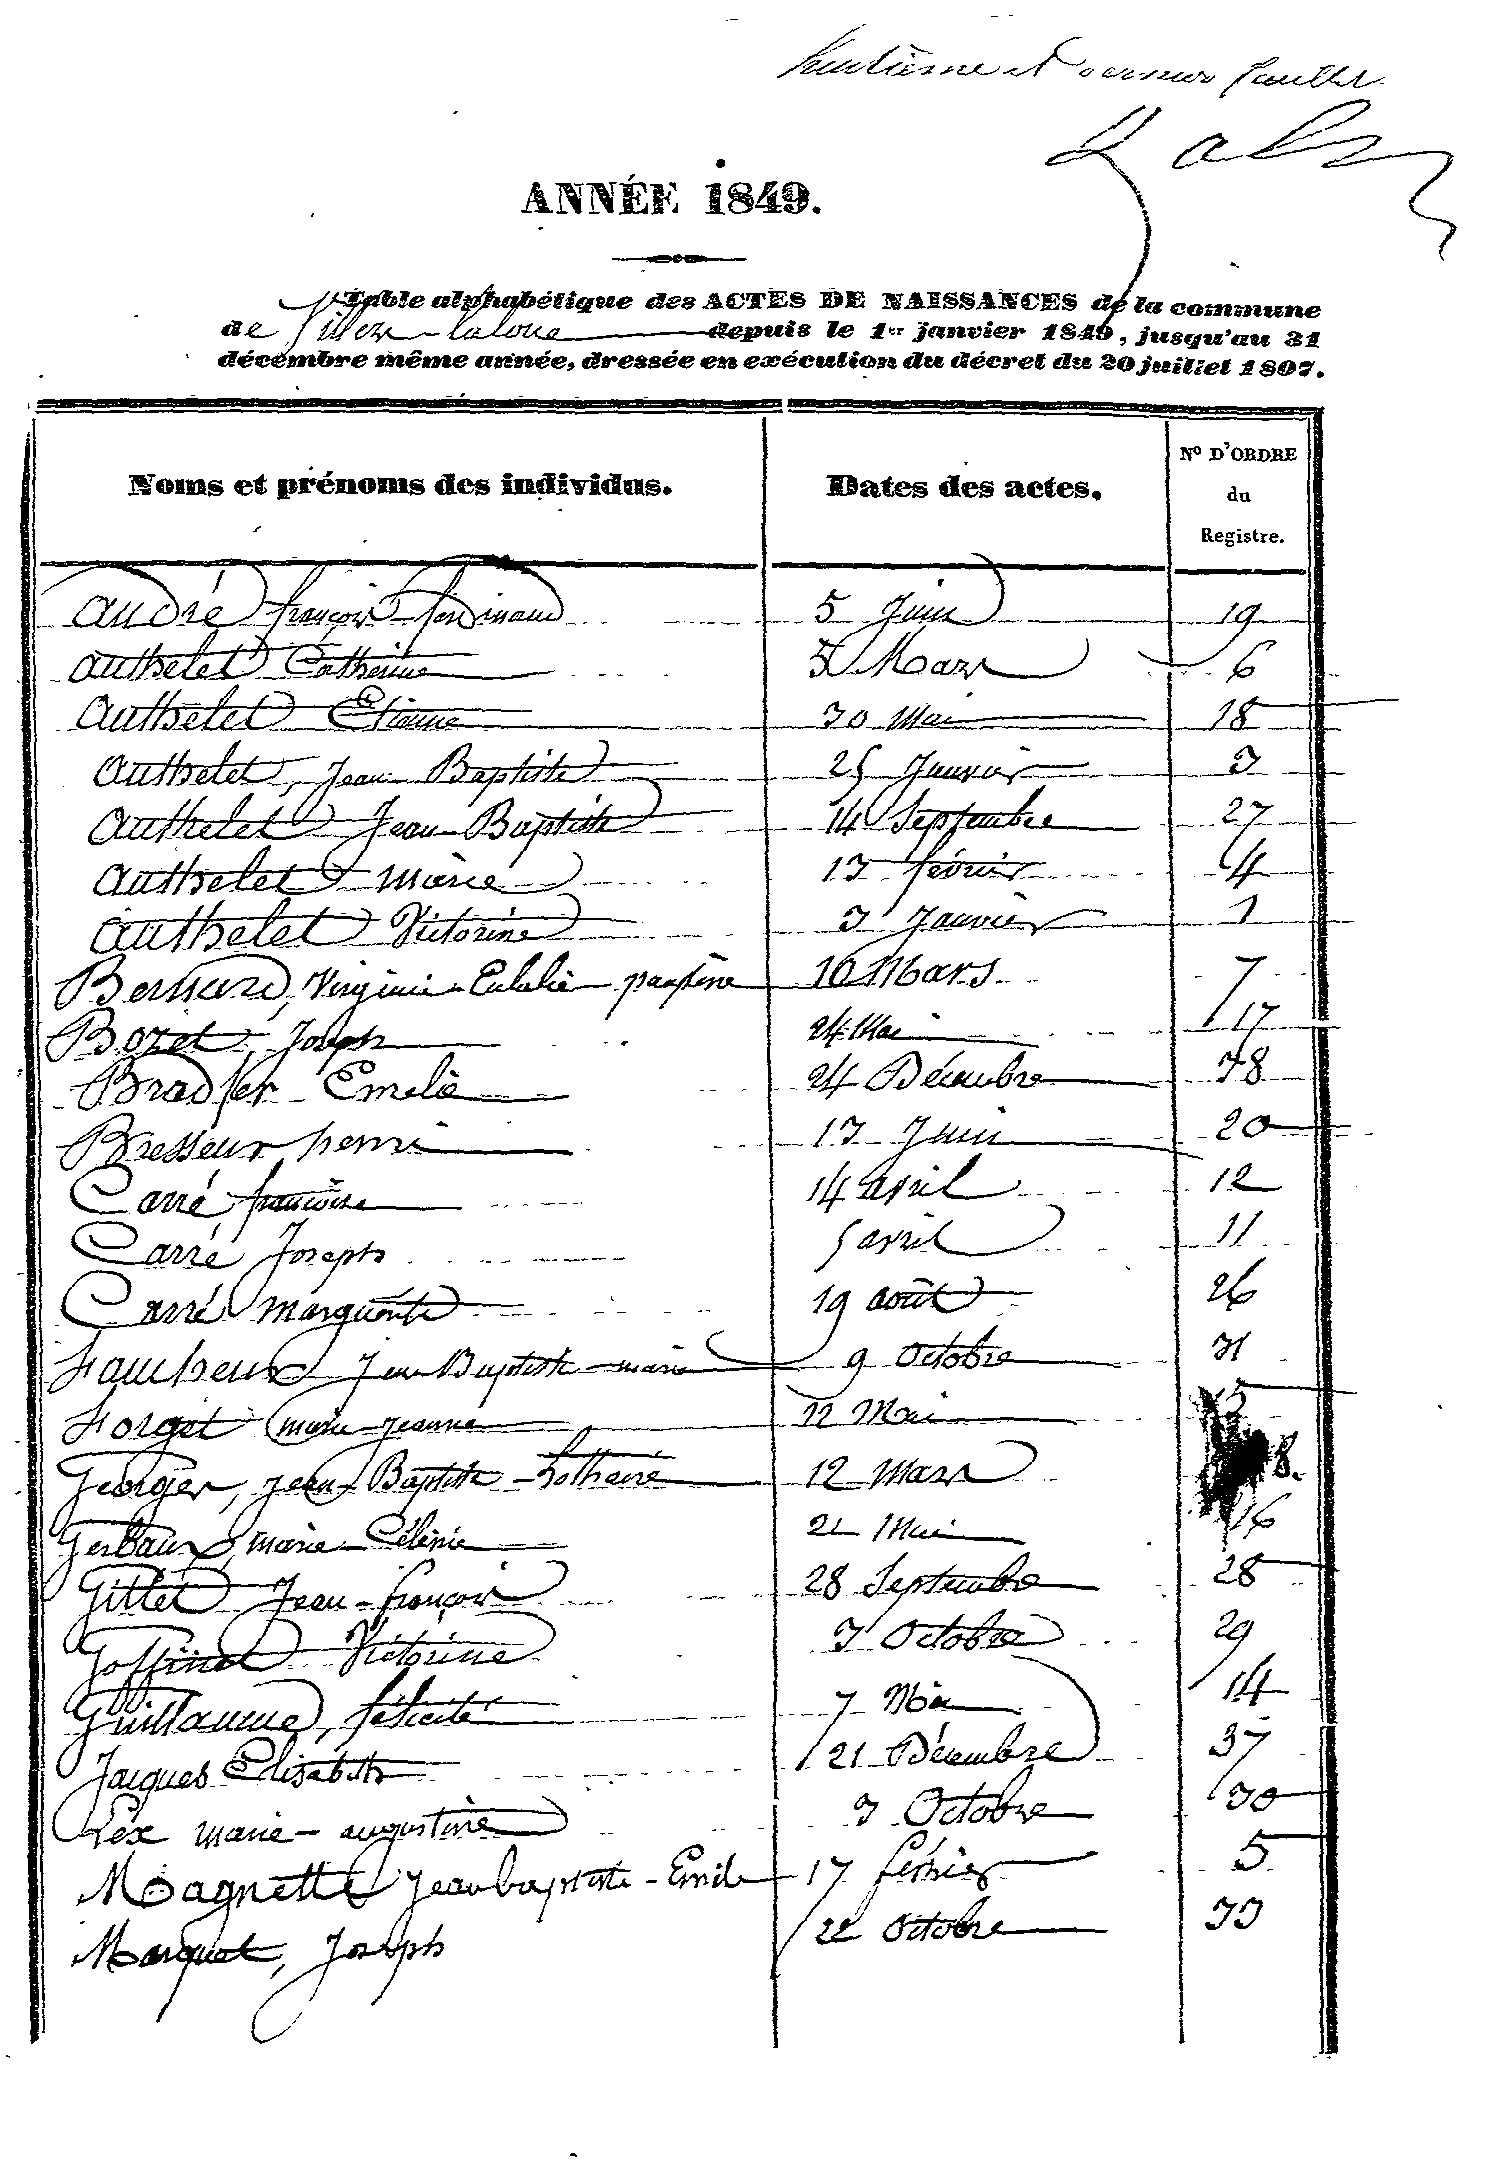 huitième et dernier feuillet
ANNÉE 1849.
Table alphabétique des ACTES DE NAISSANCES de la commune
de Villers-la-loue depuis le 1er janvier 1849, jusqu'au 31
décembre même année, dressée en exécution du décret du 20 juillet 1807.
Noms et prénoms des individus. Dates des actes. No D'ORDRE du Registre.
André françois-ferdinand 5 Juin 19
Authelet Catherine 5 Mars 6
Authelet Etienne 30 Mai 18
Authelet, Jean Baptiste 25 Janvier 3
Authelet Jean-Baptiste 14 Septembre 27
Authelet Marie 13 février 4
Authelet Victorine 3 Janvier 1
Bernard, Virginie-Eulalie-pauline 10 Mars 7
Bozet, Joseph 24 Mai 17
Bradfer Emelie 24 Décembre 38
Bresseur henri 13 Juin 20
Carré françoise 14 avril 12
Carré Joseph 5 avril 11
Carré Marguerite 19 août 26
Faucheux Jean Baptiste-marie 9 Octobre 31
Forget marie-jeanne 12 Mai 15
Georges, jean-Baptiste-Lothaire 12 Mars 8.
Gerbaux, marie-Célinie 21 Mai 16
Gillet Jean-françois 28 Septembre 28
Goffinet Victorine 3 Octobre 29
Guillaume, félicité 7 Mai 14
Jacques Elisabeth 21 Décembre 37
Lex marie-augustine 3 Octobre 30
Magnette Jean baptiste-Emile 17 février 5
Marquet, Joseph 22 Octobre 33